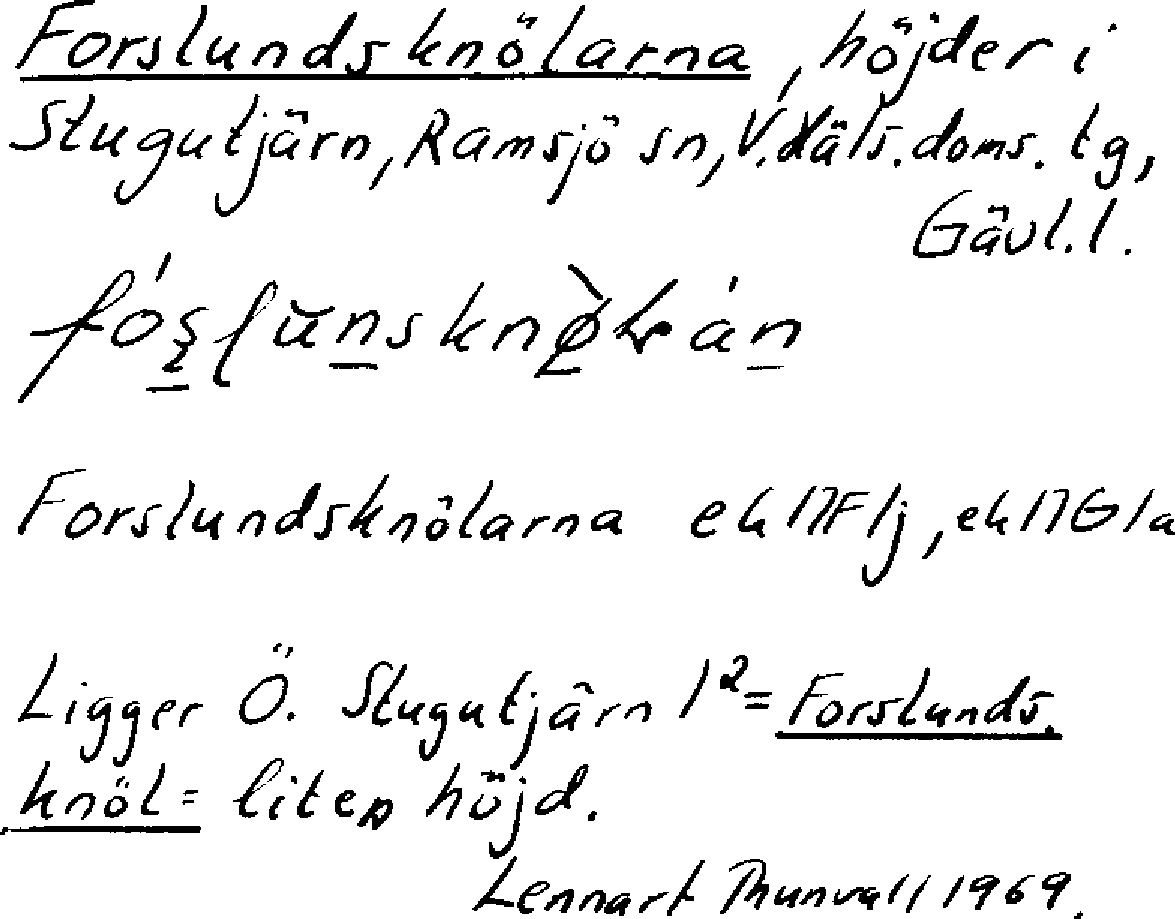 Forslundsknölarna, höjder i
Stugutjärn, Ramsjö sn, V. Häls. doms. tg,
Gävl. l.
Forslundsknölarna ek
Ligger Ö. Stugutjärn 1² = Forslunds.
knöl = liten höjd.
Lennart Thunvall 1969.